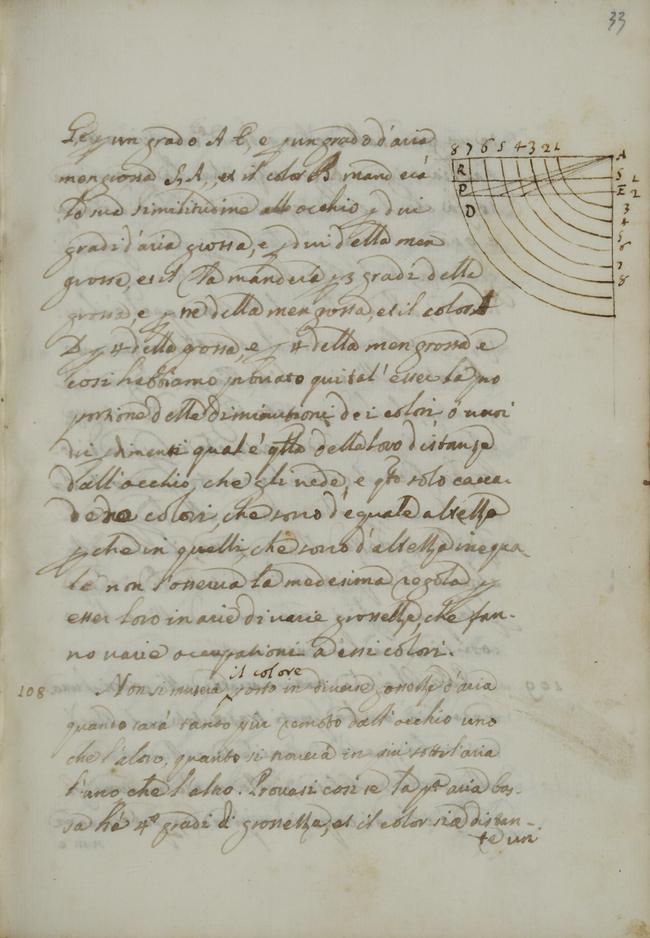 33
un grado A E, e un grado d'aria
men grossa S, A, et il color B manderà
la sua similitudine all occhio p dui
gradi d'aria grossa, e p dui della men
grossa, et il C la manderà p 3 gradi della
grossa, e p tre della men grossa, et il color
D p 4 della grossa, e p 4 della men grossa e
cosi habbiamo provato qui tal' esser la pro
portione delle diminutioni de i colori o vuoi
dir qual'é qlla delle loro distanze
dall'occhio, che gli vede, e qto solo acca.
de ne colori, che sono d'equale altezza
p che in quelli, che sono d'altezza inequa
le non s'osserva la medesima regola p
esser loro in arie di varie grossezze, che fan-
no varie occupationi ad essi colori.
il colore
108 Non si muterà posto in diverse grossezze d'aria
quando sarà tanto piu remoto dall'occhio uno
che l'altro, quanto si troverà in piu sottil aria
l'uno che l'altro. Provasi cosi se la pa aria bas-
sa hà 4o gradi di grossezza, et il color sia distan-
te un
8 7 6 5 4 3 2 1
A
R
P
D
S 1
E 2
3
4
5
6
7
8